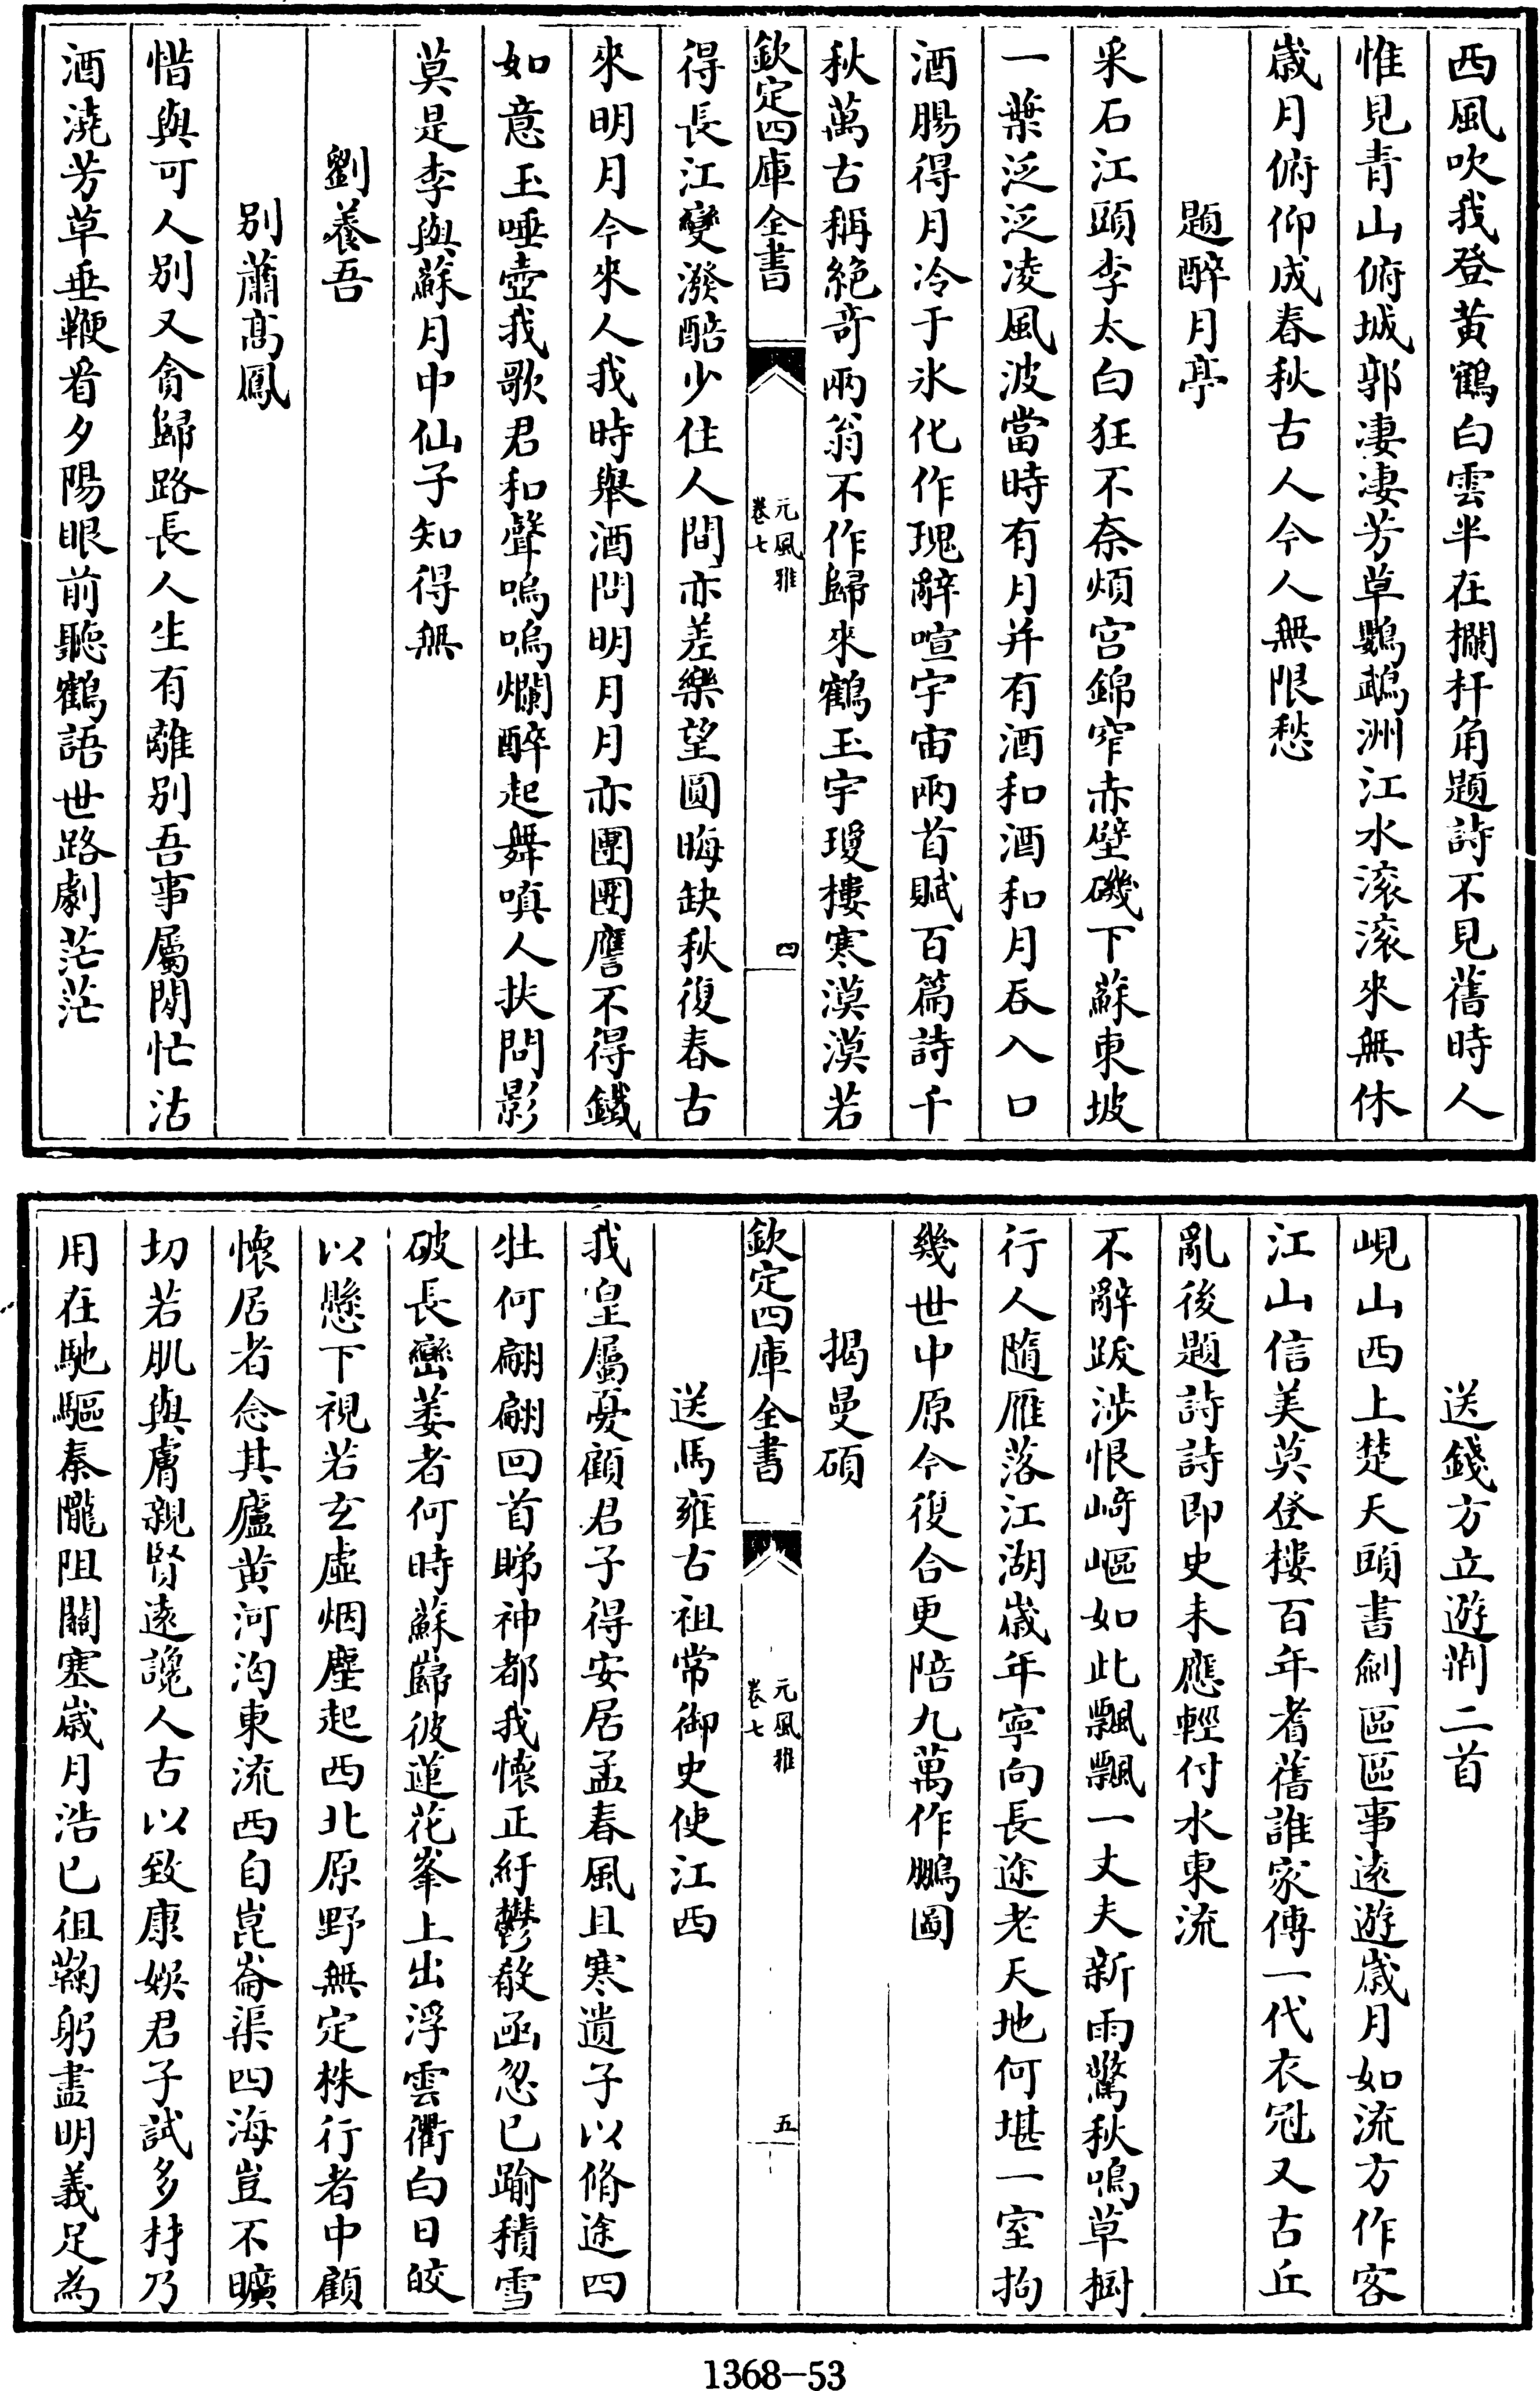 西風吹我登黃鶴白雲半在欄杆角題詩不見舊時人
惟見青山俯城郭淒淒芳草鸚鵡洲江水滚滚來無休
歲月俯仰成春秋古人今人無限愁
題醉月亭
采石江頭李太白狂不奈煩宫錦窄赤壁磯下蘇東坡
一葉泛泛凌風波當時有月并有酒和酒和月吞入口
酒腸得月冷于氷化作瑰辭喧宇宙兩首賦百篇詩千
秋萬古稱絶奇兩翁不作歸來鶴玉宇瓊樓寒漠漠若
欽定四庫全書
元風雅
卷七
四
得長江變潑醅少住人間亦差樂望圓晦缺秋復春古
來明月今來人我時舉酒問明月月亦團團譍不得鐡
如意玉唾壺我歌君和聲嗚嗚爛醉起舞嗔人扶問影
莫是李與蘇月中仙子知得無
劉養吾
别蕭髙鳳
惜與可人别又貪歸路長人生有離别吾事屬閒忙沽
酒澆芳草垂鞭看夕陽眼前聽鶴語世路劇茫茫
送錢方立遊荆二首
峴山西上楚天頭書劍區區事遠遊歲月如流方作客
江山信美莫登樓百年耆舊誰家傳一代衣冠又古丘
亂後題詩詩即史未應輕付水東流
不辭跋涉恨﨑嶇如此飄飄一丈夫新雨驚秋鳴草樹
行人隨雁落江湖歲年寜向長途老天地何堪一室拘
幾世中原今復合更陪九萬作鵬圖
揭曼碩
欽定四庫全書
元風雅
卷七
五
送馬雍古祖常御史使江西
我皇屬憂顧君子得安居孟春風且寒遺子以脩途四
牡何翩翩回首睇神都我懷正紆鬱殽函忽已踰積雪
破長巒萎者何時蘇巋彼蓮花峯上出浮雲衢白日皎
以懸下視若玄虚烟塵起西北原野無定株行者中顧
懷居者念其廬黄河洶東流西自崑崙渠四海豈不曠
切若肌與膚親賢遠讒人古以致康娱君子試多材乃
用在馳驅秦隴阻關塞歲月浩已徂鞠躬盡明義足為
1368-53